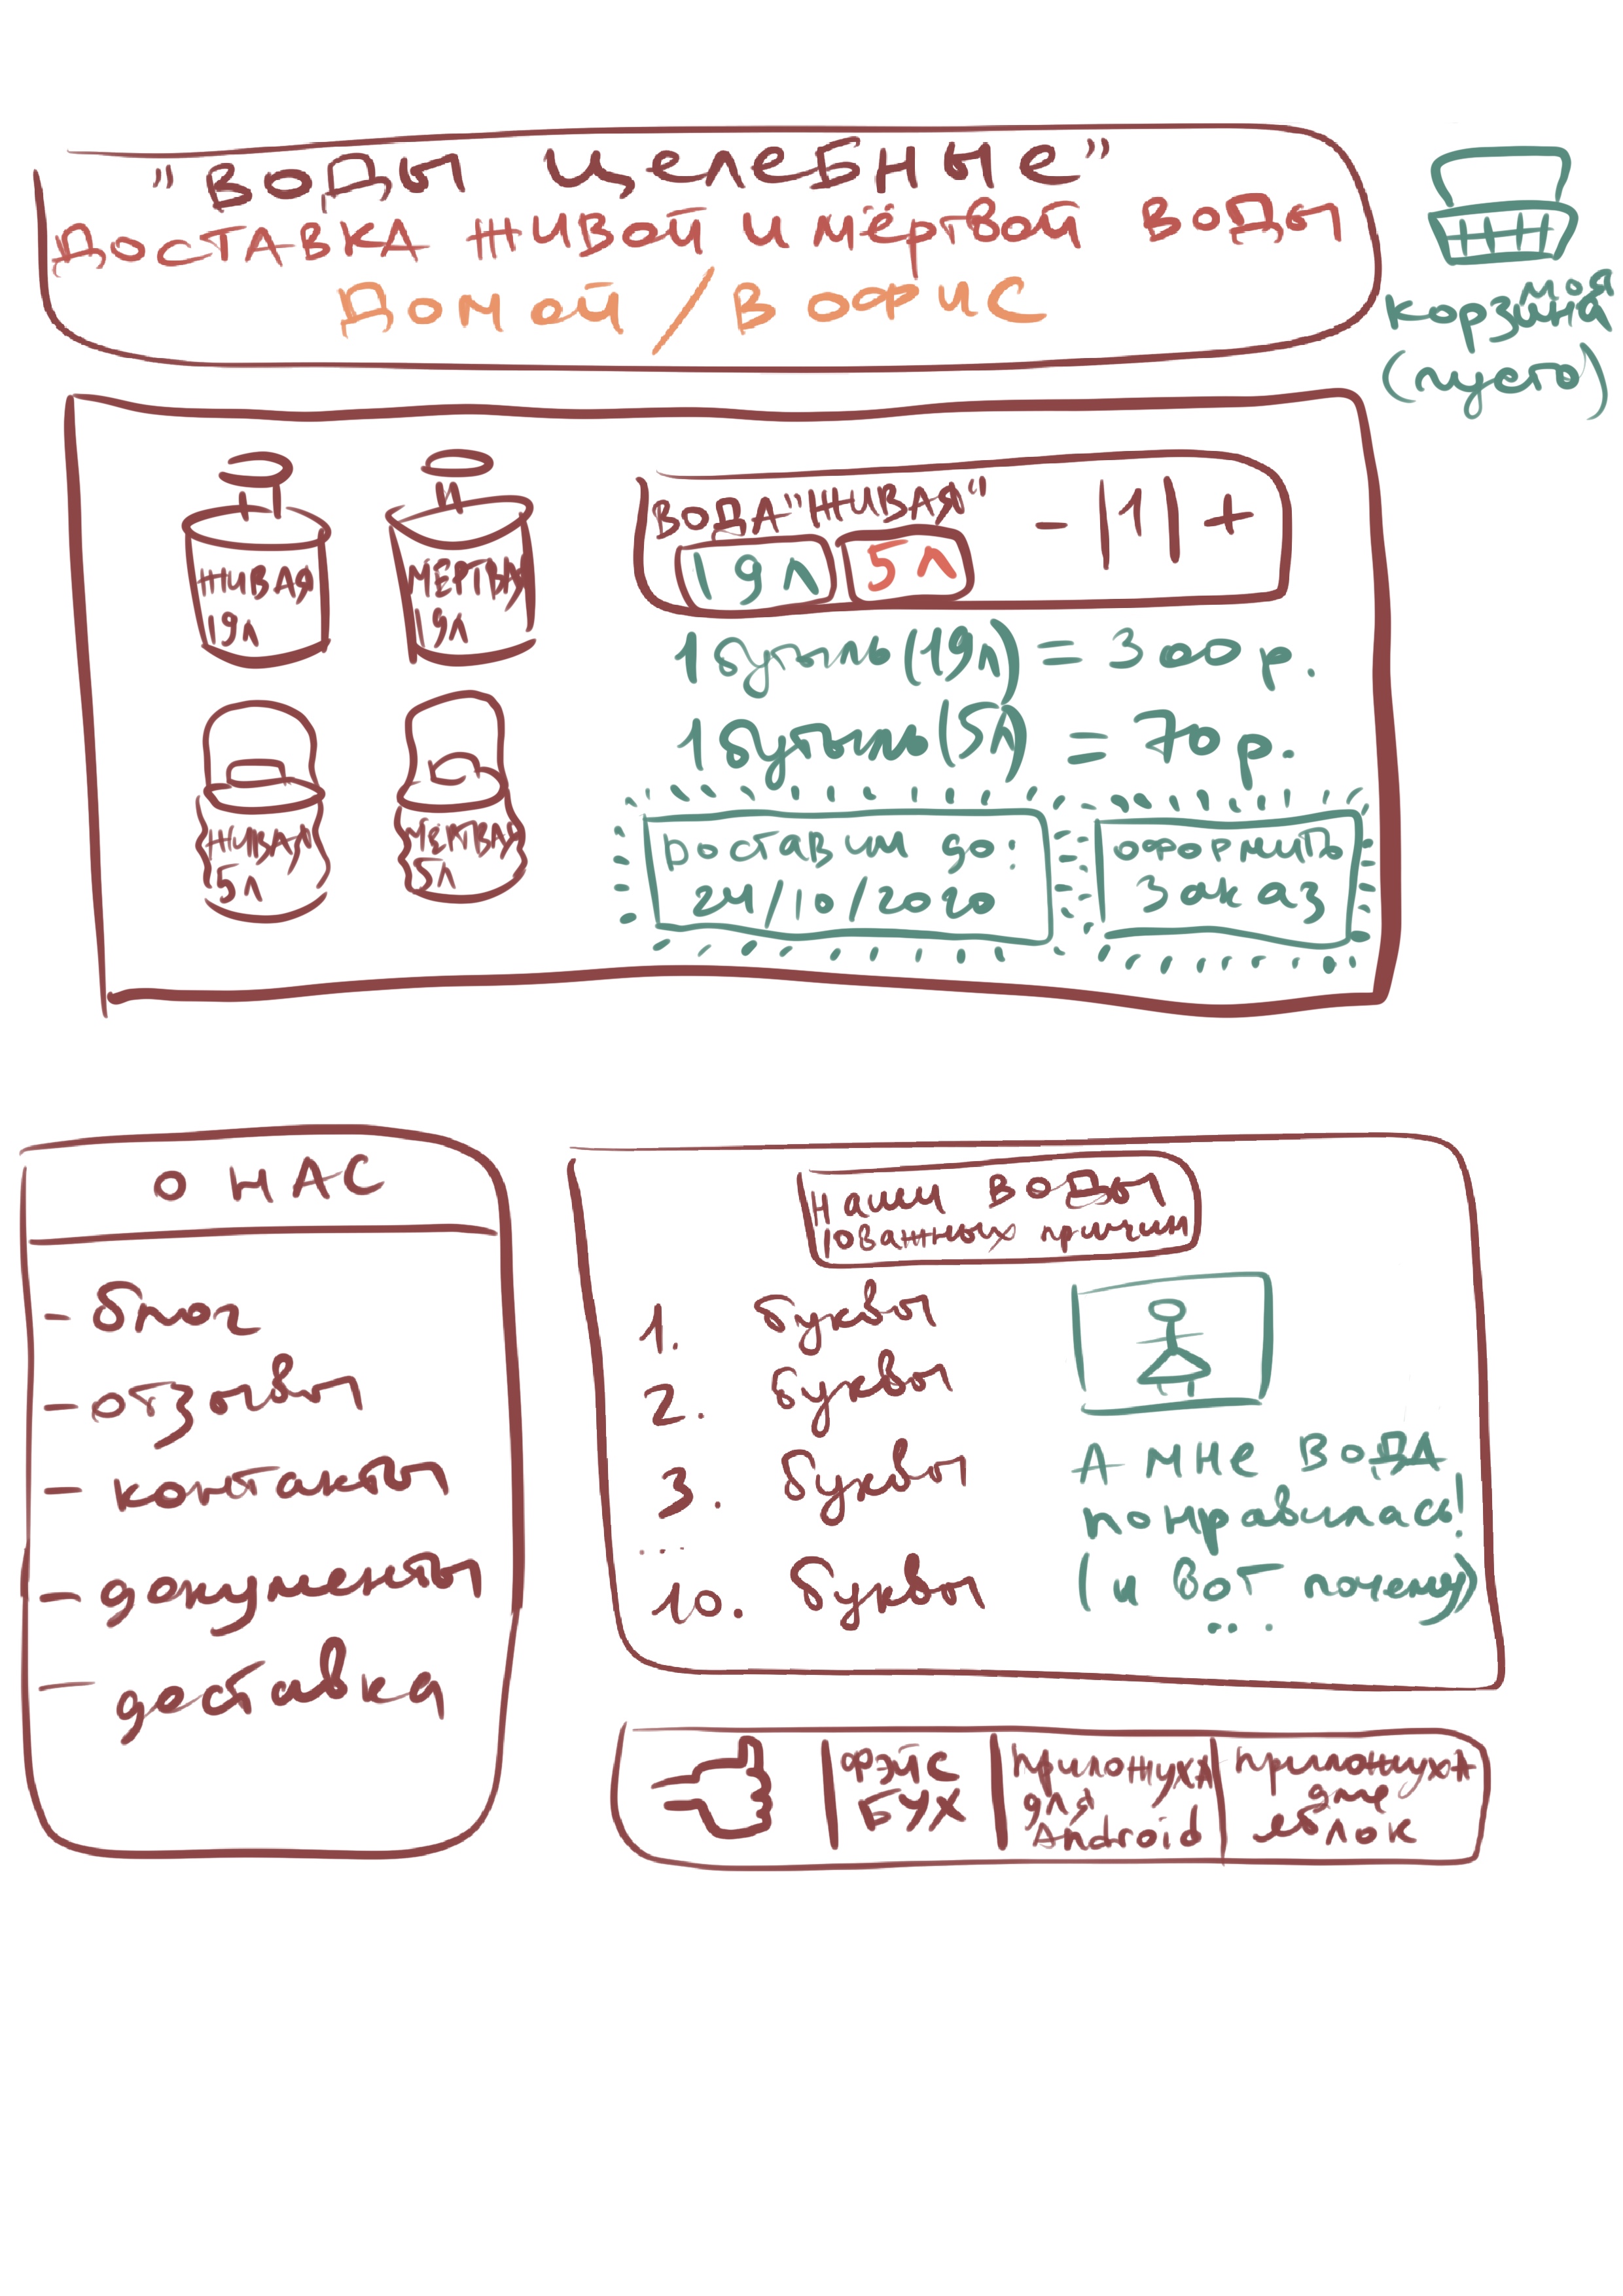 "ВОДЫ ЦЕЛЕБНЫЕ"
ДОСТАВКА ЖИВОЙ И МЁРТВОЙ ВОДЫ
ДОМОЙ / В ОФИС
моя
корзина
(пусто)
ЖИВАЯ
19л
МЁРТВАЯ
19л
ЖИВАЯ
5л
МЕРТВАЯ
5л
ВОДА "ЖИВАЯ"
- |1| +
19л
5л
1 бутыль (19л) = 300 р.
1 бутыль (5л) = 70 р.
Доставим до:
24/10/2020
оформить
заказ
О НАС
- блог
- отзывы
- контакты
- документы
- доставка
Нашей ВОДЫ
10 важных причин
1. буквы
2. буквы
3. буквы
...
10. буквы
А МНЕ ВОДА
понравилась!
(и ВОТ почему)
...
ФЭЙС
БУХ
приложуха
для
Android
приложуха
для
яблок